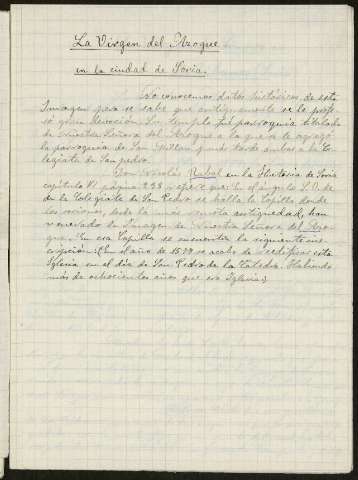 La Virgen del Azogue
en la ciudad de Soria.
No conocemos datos históricos, de esta
Imagen pero se sabe que antiguamente se la profe-
só gran devoción. Su templo fué parroquia titulada
de Nuestra Señora del Azogue a la que se le agregó
la parroquia de San Millan yendo tarde ambas a la Co-
legiata de San pedro.
Don Nicolás Rabal en la Historia de Soria
capitulo VI página 228 refiere que: En el ángulo S.O. de
de la Colegiata de San Pedro se halla la Capilla donde
los sorianos, desde la mas remota antiguedad, han
venerado la Imagen de Nuestra Señora del Azo-
gue. En esa Capilla se encuentra la siguiente ins-
cripción: (En el año de 1579 se acabo de reedificar esta
Iglesia en el día de San Pedro de la Catedra. Habiendo
más de ochocientos años que era Iglesia)